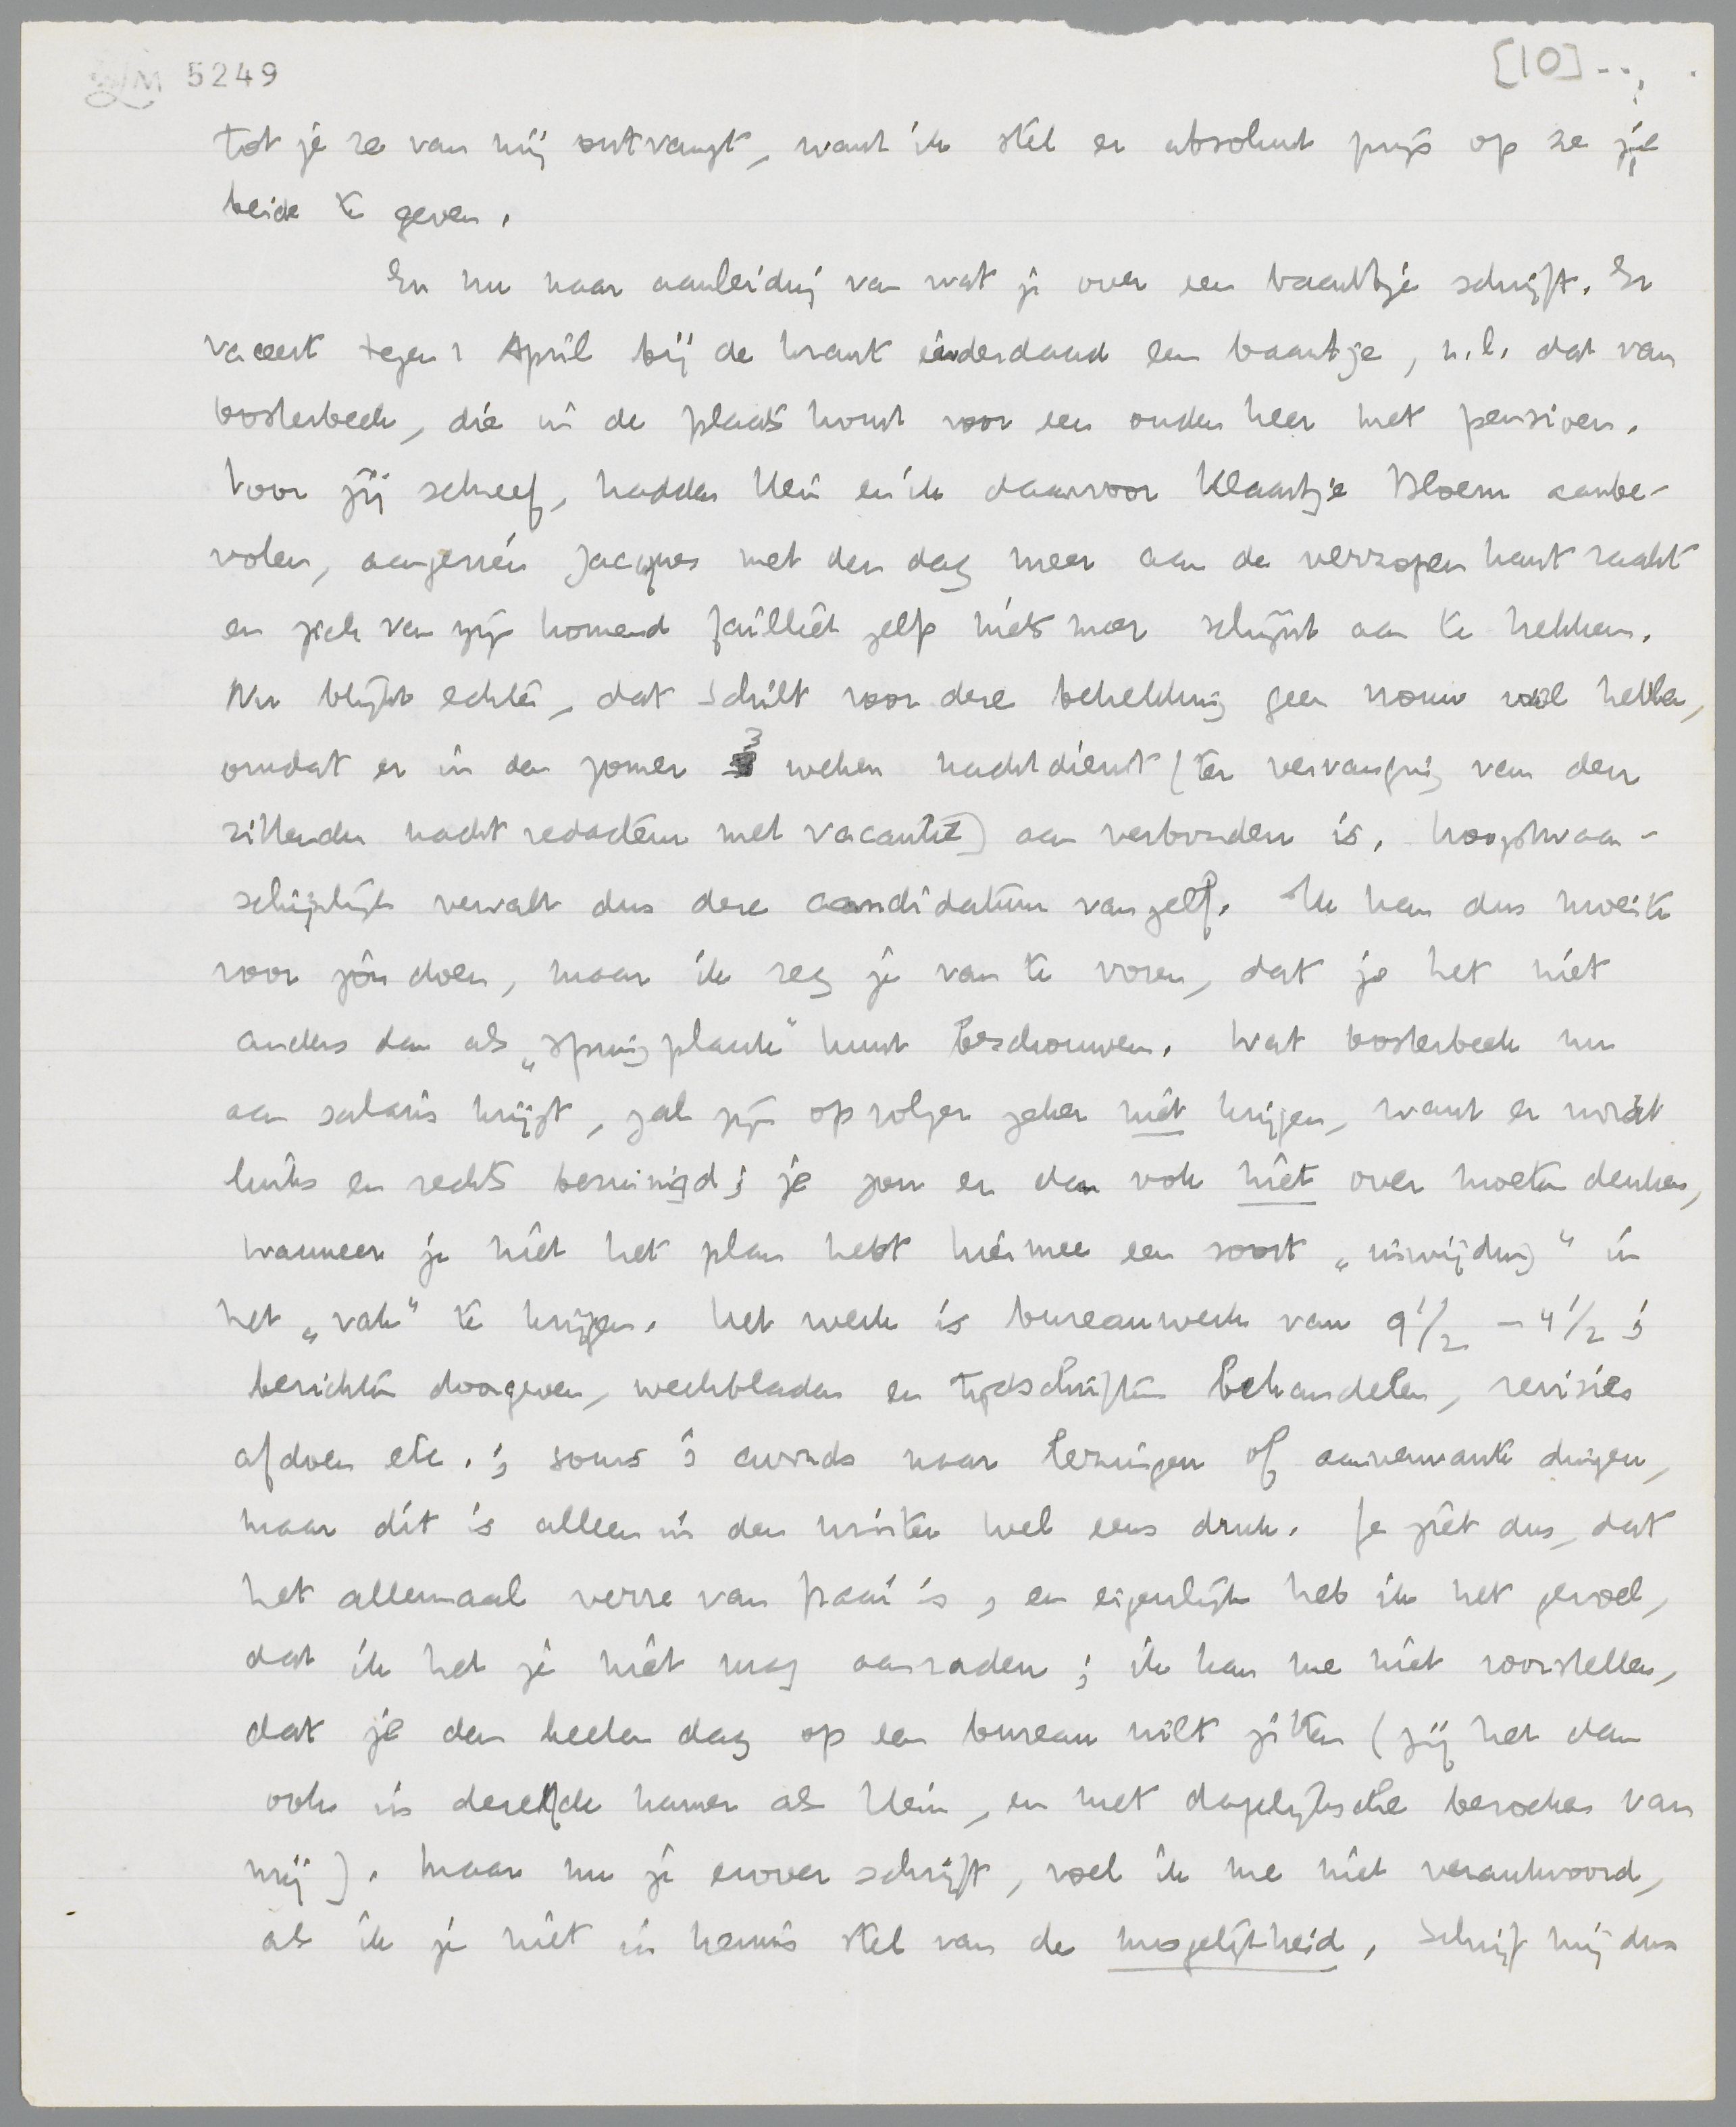 LM 5249
[10]
tot je ze van mij ontvangt, want ik stel er absoluut prijs op ze je
beide te geven.
En nu naar aanleiding van wat je over een baantje schrijft. Er
vaceert tegen 1 April bij de krant inderdaad een baantje, n.l. dat van
Oosterbeek, die in de plaats komt voor een ouden heer met pensioen.
Voor jij schreef, hadden Hein en ik daarvoor Klaartje Bloem aanbe-
volen, aangezien Jacques met den dag meer aan de verzopen kant raakt
en zich van zijn komend failliet zelf niets meer schijnt aan te trekken.
Nu blijkt echter, dat Schilt voor deze betrekking geen vrouw wil hebben,
omdat er in den zomer 3 weken nachtdienst (ter vervanging van den
zittenden nachtredacteur met vacantie) aan verbonden is. Hoogstwaar-
schijnlijk vervalt dus deze candidatuur vanzelf. Ik kan dus moeite
voor jou doen, maar ik zeg je van te voren, dat je het niet
anders dan als „springplank" kunt beschouwen. Wat Oosterbeek nu
aan salaris krijgt, zal zijn opvolger zeker niet krijgen, want er wordt
links en rechts bezuinigd; je zou er dan ook niet over moeten denken,
wanneer je niet het plan hebt hiermee een soort „inwijding" in
het „vak" te krijgen. Het werk is bureauwerk van 9 1/2 – 4 1/2;
berichten doorgeven, weekbladen en tijdschriften behandelen, revisies
afdoen etc.; soms 's avonds naar lezingen of aanverwante dingen,
maar dit is alleen in den winter wel eens druk. Je ziet dus, dat
het allemaal verre van fraai is, en eigenlijk heb ik het gevoel,
dat ik het je niet mag aanraden; ik kan me niet voorstellen,
dat je den heelen dag op een bureau wilt zitten (zij het dan
ook in dezelfde kamer als Hein, en met dagelijksche bezoeken van
mij). Maar nu je erover schrijft, voel ik me niet verantwoord,
als ik je niet in kennis stel van de mogelijkheid. Schrijf mij dus